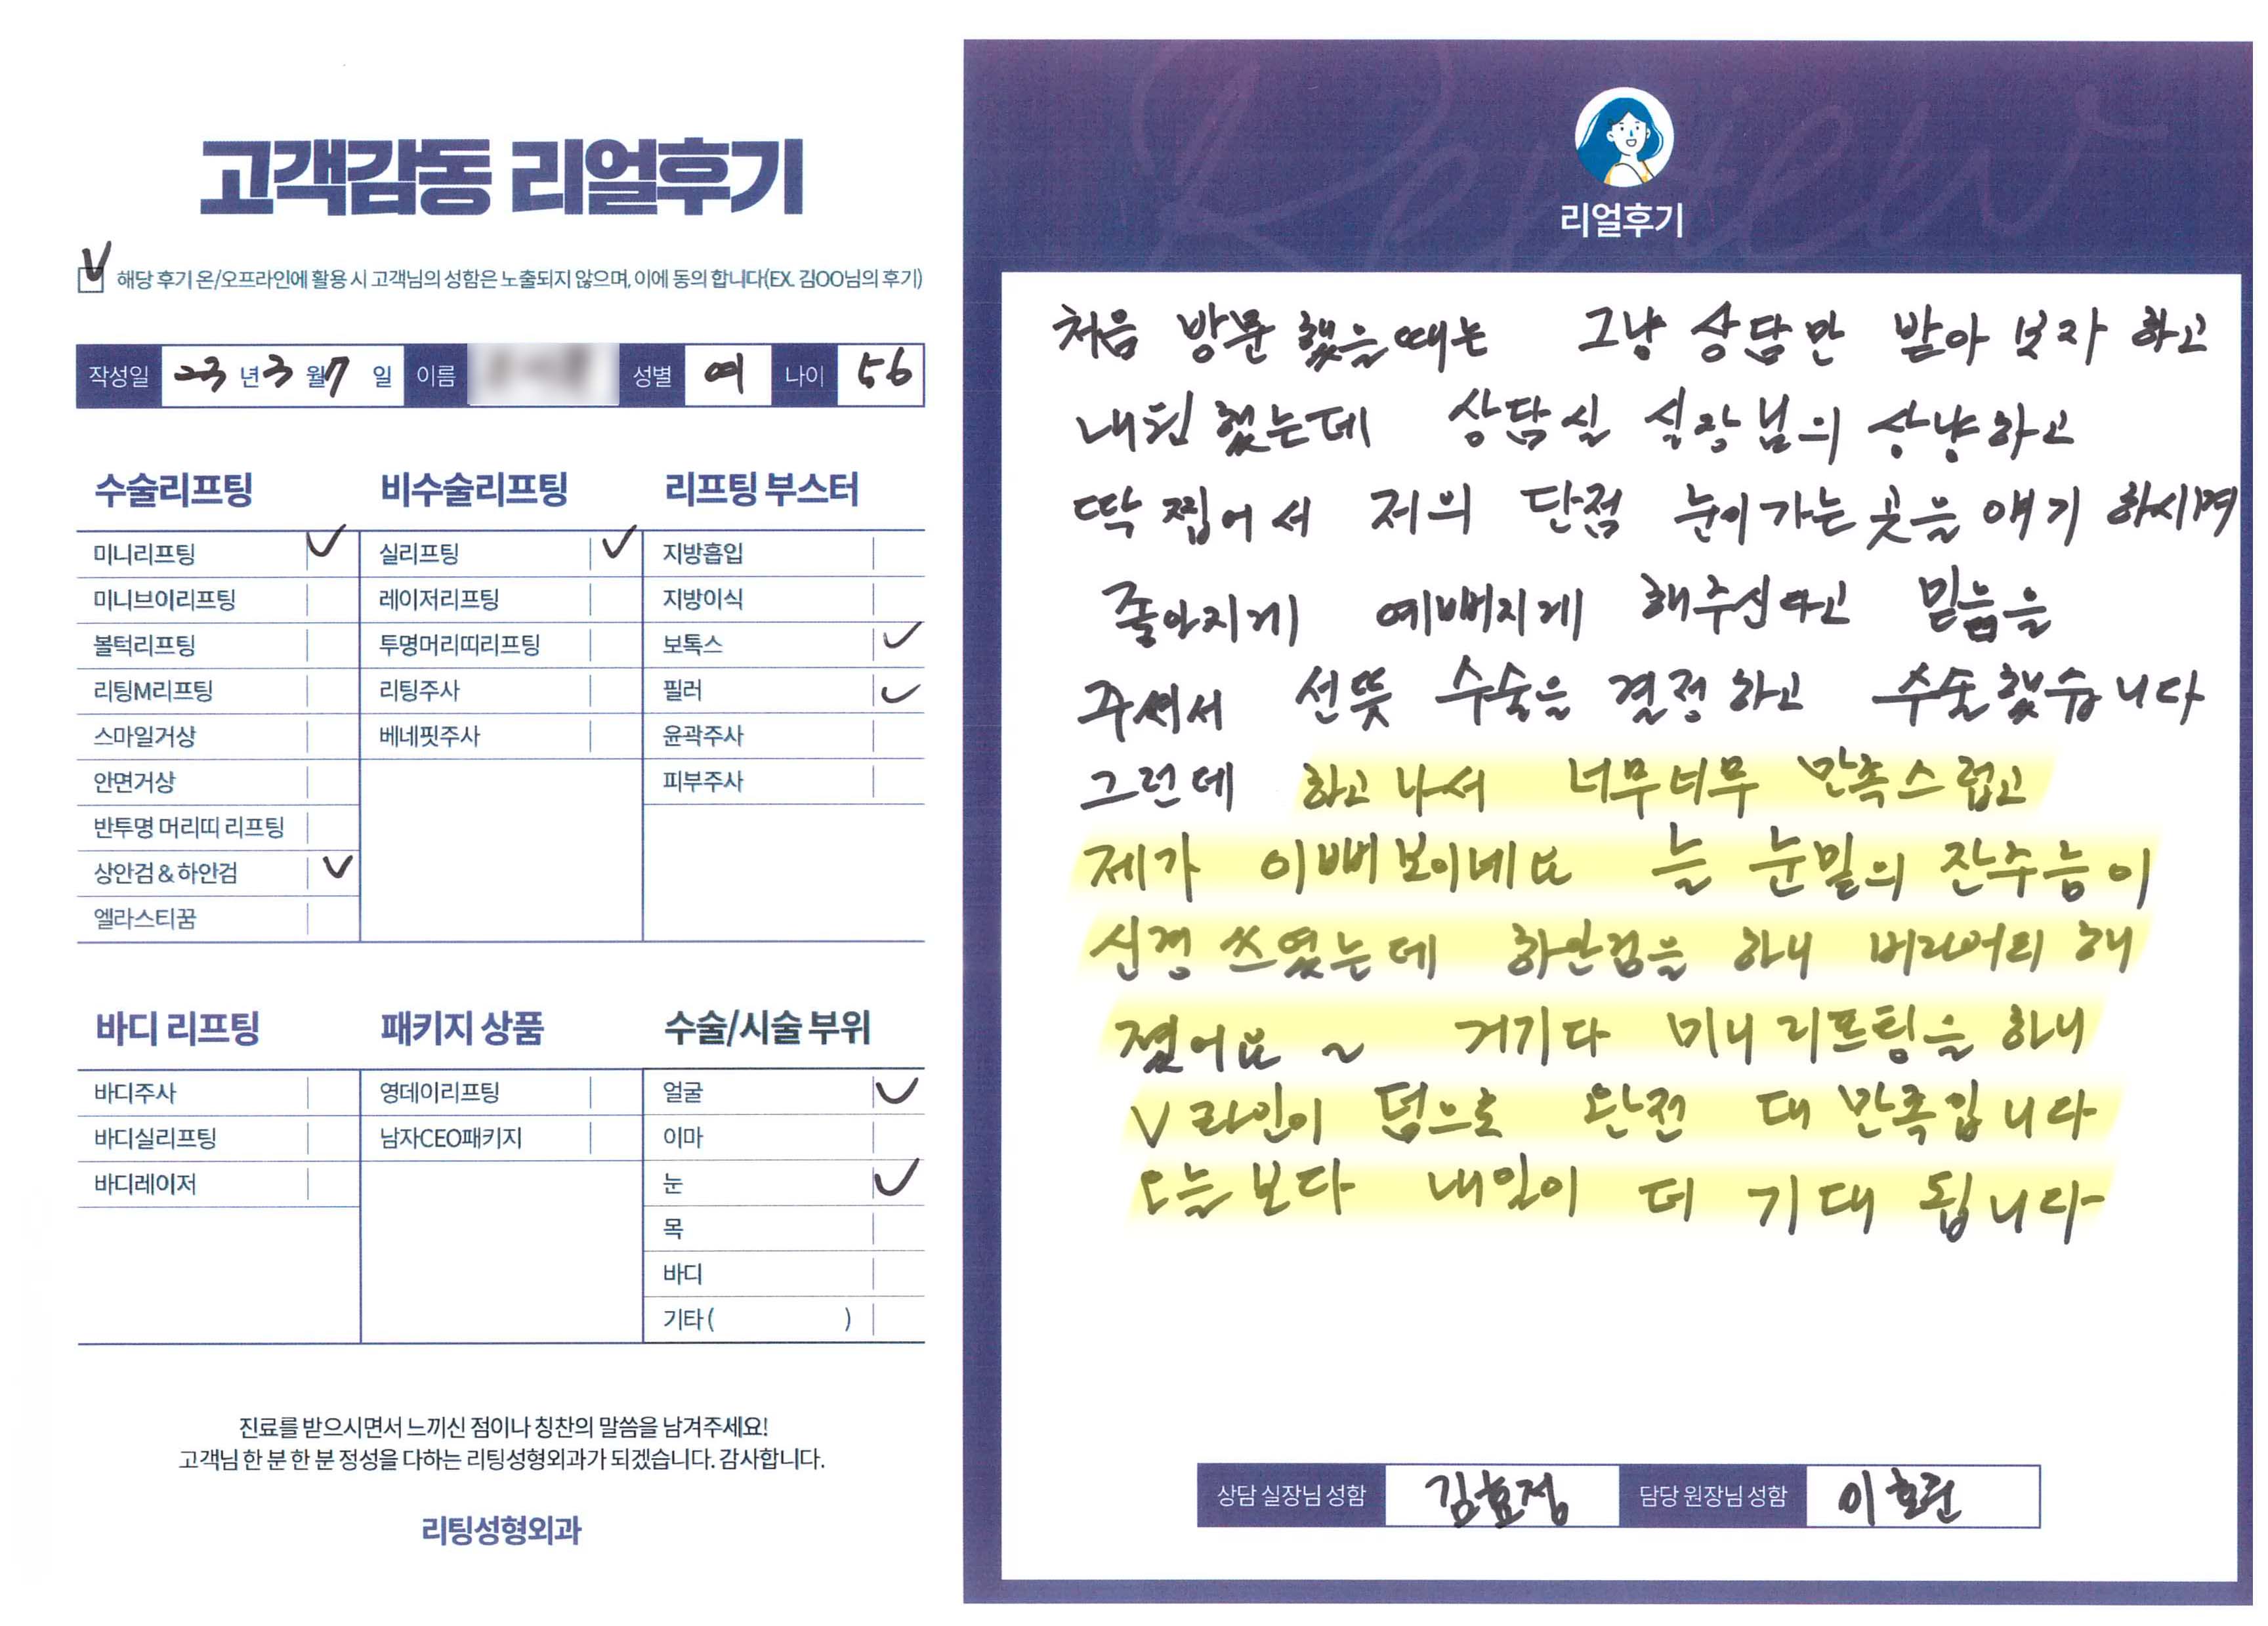 고객감동 리얼후기
해당 후기 온/오프라인에 활용 시 고객님의 성함은 노출되지 않으며, 이에 동의 합니다(EX. 김OO님의 후기)
작성일 23년 3월 7일 이름 성별 여 나이 56
수술리프팅
미니리프팅
미니브이리프팅
볼턱리프팅
리팅M리프팅
스마일거상
안면거상
반투명 머리띠 리프팅
상안검 & 하안검
엘라스티꿈
비수술리프팅
실리프팅
레이저리프팅
투명머리띠리프팅
리팅주사
베네핏주사
리프팅 부스터
지방흡입
지방이식
보톡스
필러
윤곽주사
피부주사
바디 리프팅
바디주사
바디실리프팅
바디레이저
패키지 상품
영데이리프팅
남자CEO패키지
수술/시술 부위
얼굴
이마
눈
목
바디
기타 ( )
진료를 받으시면서 느끼신 점이나 칭찬의 말씀을 남겨주세요!
고객님 한 분 한 분 정성을 다하는 리팅성형외과가 되겠습니다. 감사합니다.
리팅성형외과
Review
리얼후기
처음 방문 했을때는 그냥 상담만 받아 보자 하고
내원 했는데 상담실 실장님의 상냥하고
딱 찝어서 저의 단점 눈이가는 곳을 얘기 하시며
좋아지게 예뻐지게 해주신다고 믿음을
주셔서 선뜻 수술을 결정하고 수술했습니다
그런데 하고 나서 너무너무 만족스럽고
제가 이뻐 보이네요 늘 눈밑의 잔주름이
신경 쓰였는데 하안검을 하니 버라이어티 해
졌어요 ~ 거기다 미니 리프팅을 하니
V라인이 덤으로 완전 대 만족입니다
오늘보다 내일이 더 기대 됩니다
상담 실장님 성함 김효정 담당 원장님 성함